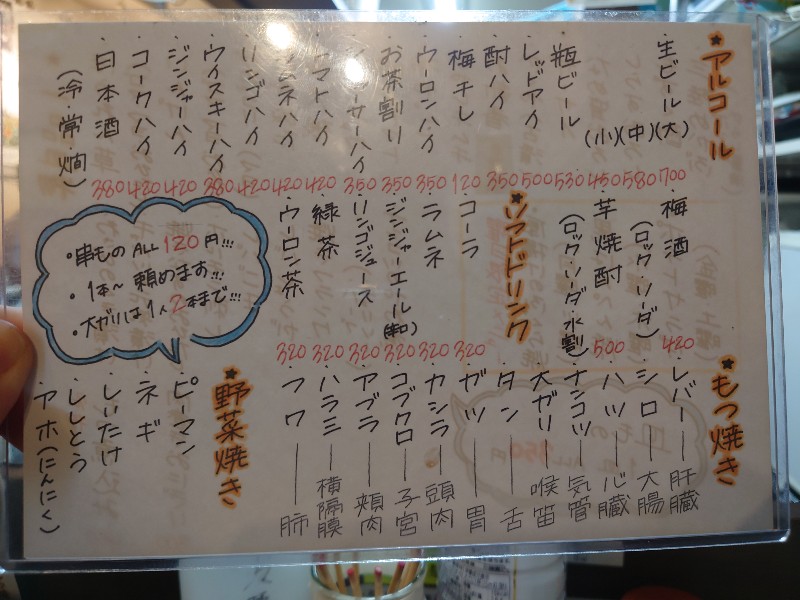 ★アルコール
・生ビール(大) 700
(中) 580
(小) 450
・瓶ビール 530
・レッドアイ 500
・酎ハイ 350
・梅干し 120
・ウーロンハイ 350
・お茶割り 350
サーハイ 350
・トマトハイ 420
ラムネハイ 420
・リンゴハイ 420
・ウイスキーハイ 380
・ジンジャーハイ 420
・コークハイ 420
・日本酒 380
(冷・常・燗)
・梅酒 420
(ロック・ソーダ)
・芋焼酎 500
(ロック・ソーダ・水割)
★ソフトドリンク
・コーラ 320
・ラムネ 320
・ジンジャーエール(和) 320
・リンゴジュース 320
・緑茶 320
・ウーロン茶 320
・串もの ALL 120円!!!
・1本〜 頼めます!!!
・大ガリは1人2本まで!!!
★もつ焼き
・レバー―肝臓
・シロ―大腸
・ハツ―心臓
・ナンコツ―気管
・大ガリ―喉笛
・タン―舌
・ガツ―胃
・カシラ―頭肉
・コブクロ―子宮
・アブラ―頬肉
・ハラミ―横隔膜
・フワ―肺
★野菜焼き
・ピーマン
・ネギ
・しいたけ
・ししとう
・アホ(にんにく)